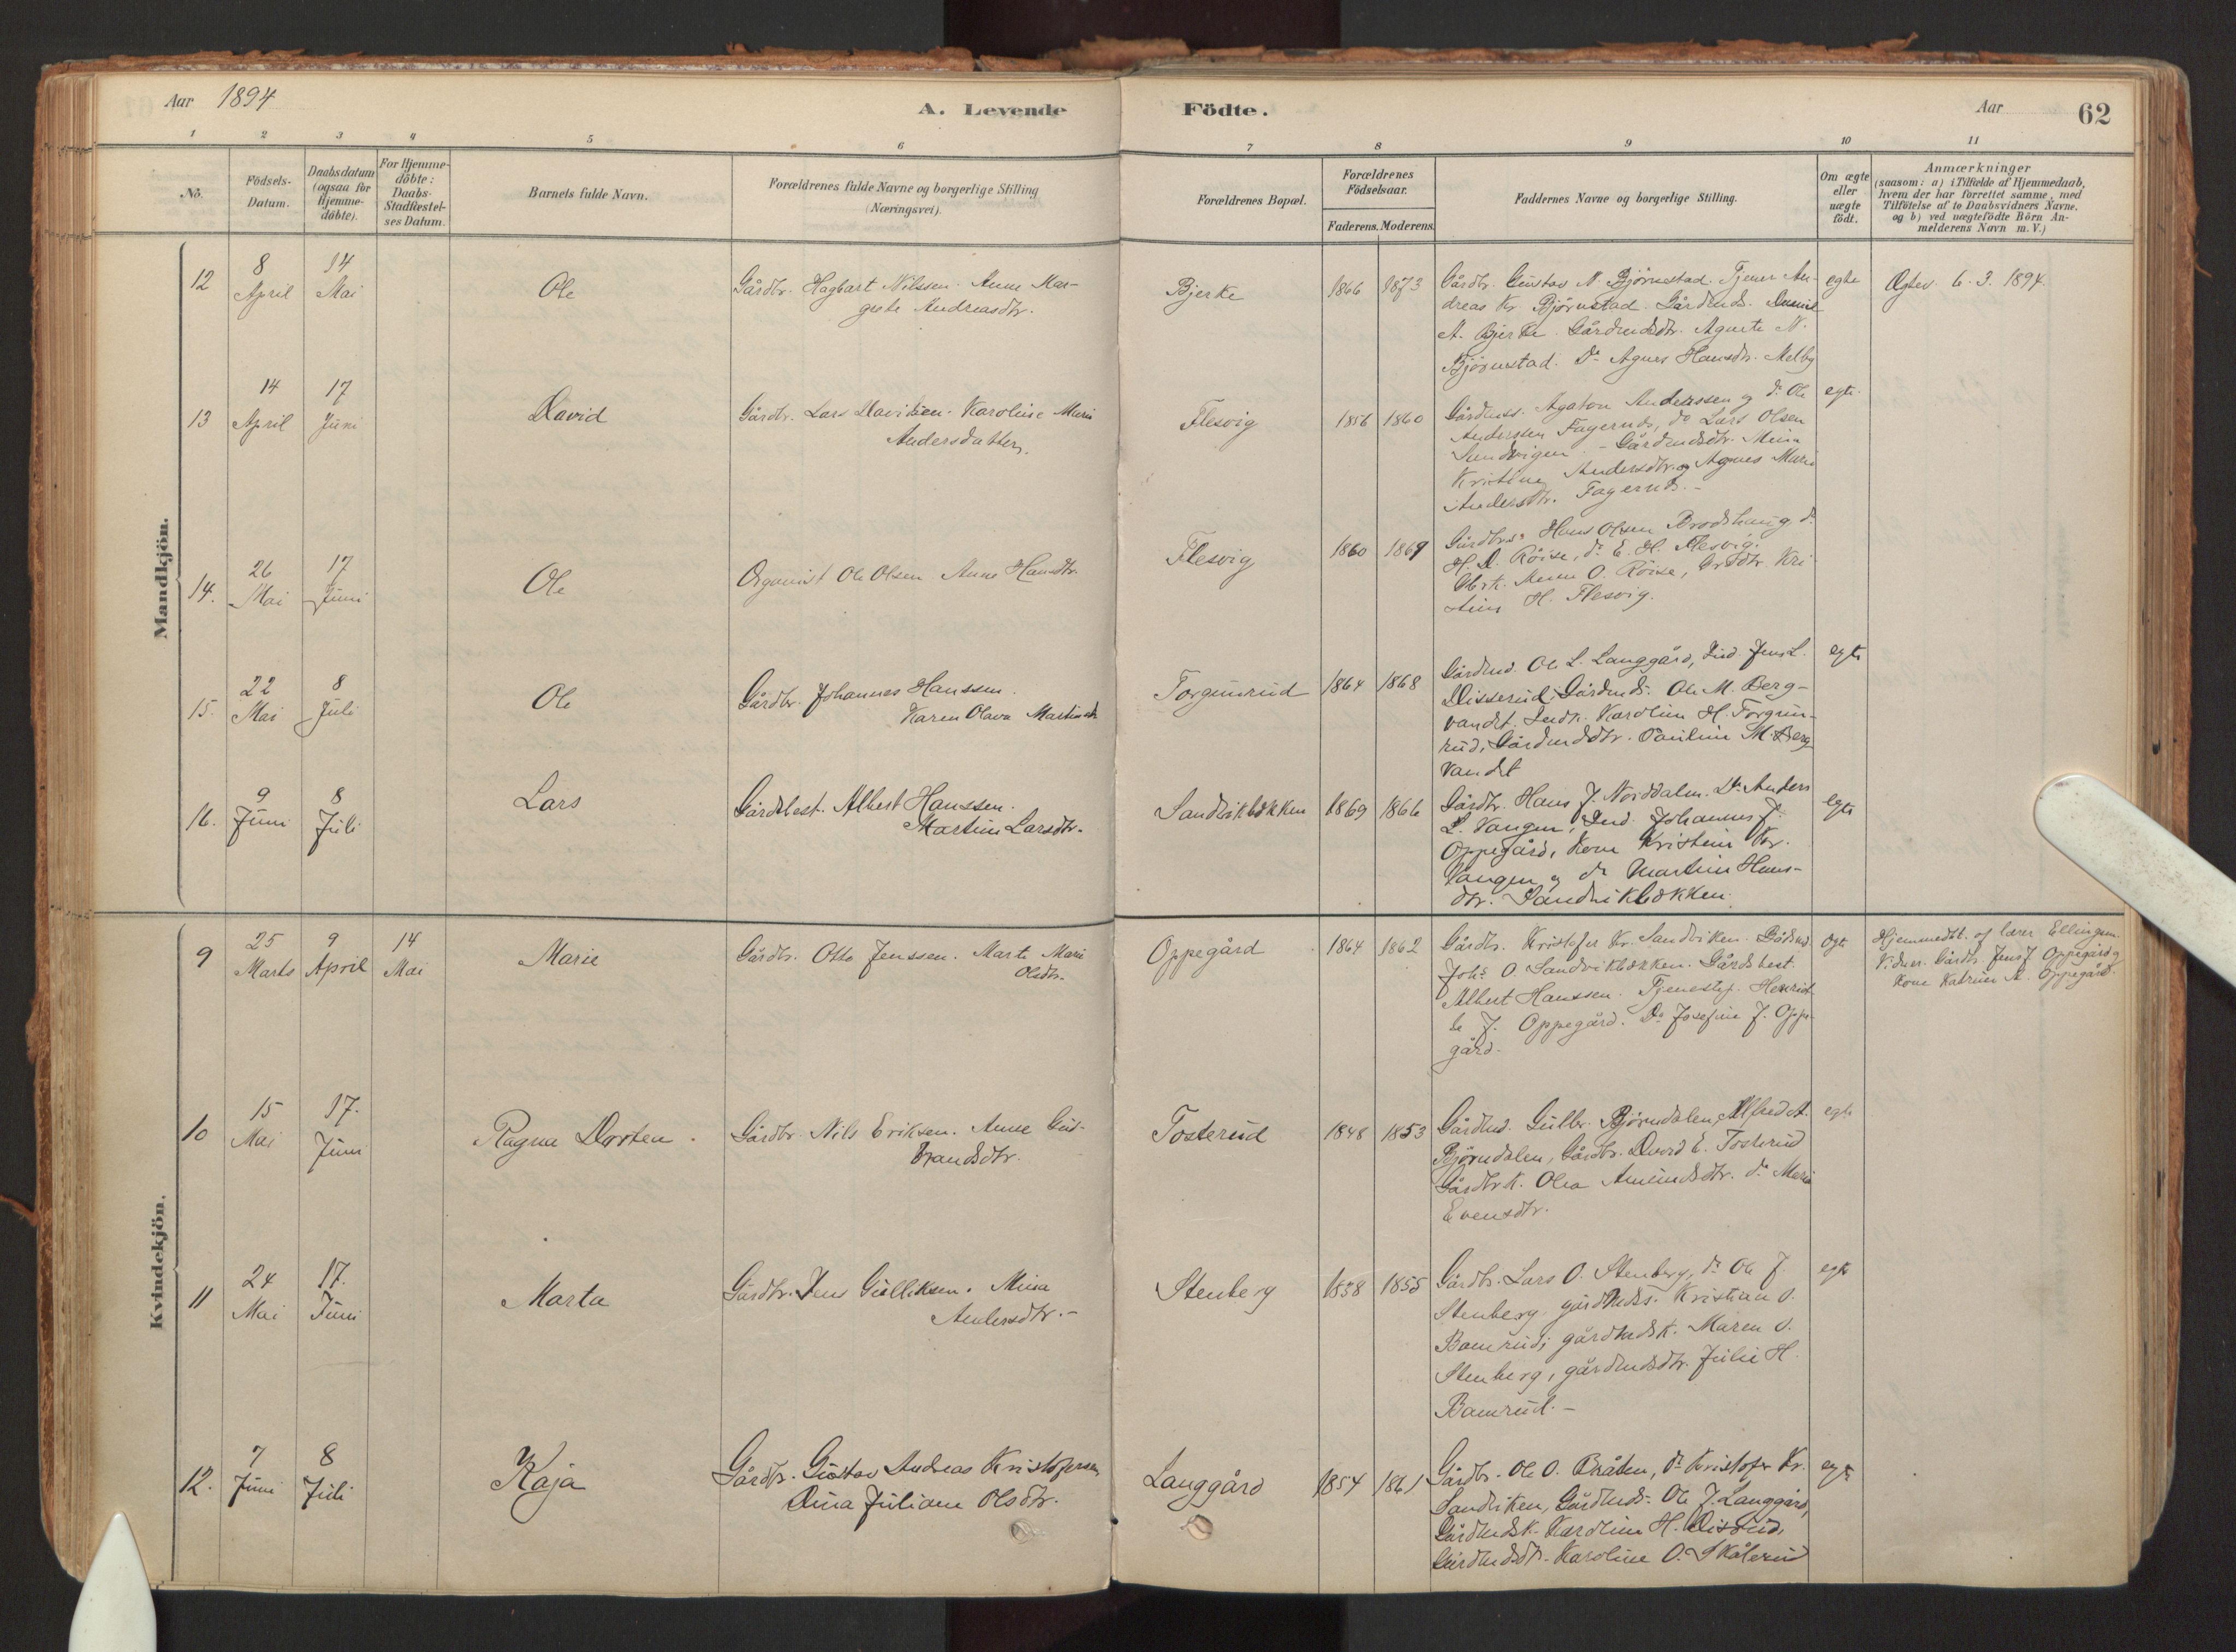 Aar 1894
A. Levende Födte.
Aar
62
1 2 3 4 5 6 7 8 9 10 11
No.
Födsels-
Datum.
Daabsdatum
(ogsaa for
Hjemme-
döbte).
For Hjemme-
döbte:
Daabs-
Stadfæstel-
ses Datum.
Barnets fulde Navn.
Forældrenes fulde Navne og borgerlige Stilling
(Næringsvei).
Forældrenes Bopæl.
Forældrenes
Födselsaar.
Faderens. Moderens.
Faddernes Navne og borgerlige Stilling.
Om ægte
eller
uægte
födt.
Anmærkninger
(saasom: a) i Tilfælde af Hjemmedaab,
hvem der har forrettet samme, med
Tilföielse af to Daabsvidners Navne.
og b) ved uægtefödte Börn An-
melderens Navn m. V.)
Mandkjön.
12
8
April
14
Mai
Ole
Gårdbr. Hagbart Nilssen. Anne Mar-
grete Andreasdtr.
Bjerke
1866 1873
Gårdbr. Gustav N. Björnstad. Tjener An-
dreas Kr. Björnstad. Gårdmds.
A. Bjerke. Gårdmdsdtr. Agnete N.
Björnstad. Do Agnes Hansdtr. Melby
egte
Egtev. 6. 3. 1894.
13
14
April
17
Juni
David
Gårdbr. Lars Davidsen. Karoline Marie
Andersdatter.
Flesvig
1856 1860
Gårdmss. Agaton Anderssen og do Ole
Anderssen Fagernds, do Lars Olsen
Sundvigen. - Gårdmdsdtr. Mina
Kristine Andersdtr. og Agnes Marie
Andersdtr. Fagernds. -
egte.
14.
26
Mai
17
Juni
Ole
Organist Ole Olsen Anne Hansdtr.
Flesvig
1860 1869
Gårdbrs. Hans Olsen Brodshaug do
H. O. Röise, do E. H. Flesvig.
Gbrk. Anne O. Röise, Grddtr. Kri-
stine H. Flesvig.
15.
22
Mai
8
Juli
Ole
Gårdbr. Johannes Hanssen.
Karen Olava Martinsdt
Torgunrud
1864 1868
Gårdmd. Ole L. Langgård, Ind. Jens L.
Disserud, Gårdmds. Ole M. Berg-
vandet. Indk. Karoline H. Torgun-
rud, Gårdmdsdtr. Pauline M. Berg-
vandet
egte
16.
9
Juni
8
Juli
Lars
Gårdbest. Albert Hanssen.
Martine Larsdtr.
Sandvikbækken
1869 1866
Gårdbr. Hans J. Norddalen. Do Anders
L. Vangen, Ind. Johannes J.
Oppegård, Kone Kristine Kr.
Vangen og do Martine Hans-
dtr. Sandvikbækken.
egte
Kvindekjön.
9
25
Marts
9
April
14
Mai
Marie
Gårdbr. Otto Jenssen. Marte Marie
Olsdtr.
Oppegård
1864 1862
Gårdbr. Kristofer Kr. Sandviken. Gårdmd.
Johs O. Sandvikbækken. Gårdsbest.
Albert Hanssen. Tjenestep. Henriet-
te J. Oppegård. Do Josefine J. Oppe-
gård.
egt
Hjemmedbt. af lærer Ellingsen.
Vidner. Gårdbr. Jens J. Oppegård og
Kone Katrine A. Oppegård.
10
15
Mai
17.
Juni
Ragna Dorten.
Gårdbr. Nils Eriksen. Anne Gul-
brandsdtr.
Tosterud
1848 1853
Gårdmd. Gulbr. Björndalen, Alfred A.
Björndalen, Gårdbr. Evord E. Tosterud
Gårdbrk. Olea Amundsdtr. do Marie
Evensdtr.
egte
11
24
Mai
17.
Juni
Marta
Gårdbr. Jens Gulliksen. Mina
Andersdtr. -
Stenberg
1838 1855
Gårdbr. Lars O. Stenberg, do Ole J.
Stenberg, gårdmds. Kristian O.
Bamrud, gårdmdsk. Maren O.
Stenberg, gårdmdsdtr. Julie H.
Bamrud. -
egte
12.
7
Juni
8
Juli
Kaja
Gårdbr. Gustav Andreas Kristofersen
Dina Juliane Olsdtr.
Langgård
1854 1861
Gårdbr. Ole O. Bråten, do Kristofer Kr.
Sandviken, Gårdmds. Ole J. Langgård,
Gårdmdsk. Karoline H. Disrud,
Gårdmdsdtr. Karoline O. Skålerud
egte